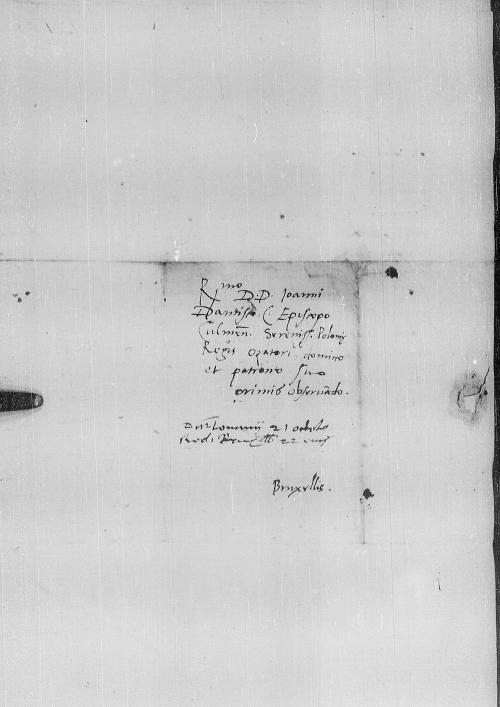 Rmo D. D. Ioanni
Dantisco E. Episcopo
Culmen. Sereniss. Polonię
Regis Oratori, domino
et patrono suo
primis observando.
Dat Lovanii 21 octobris
Red: Bruxell 22 eius
Bruxellis.